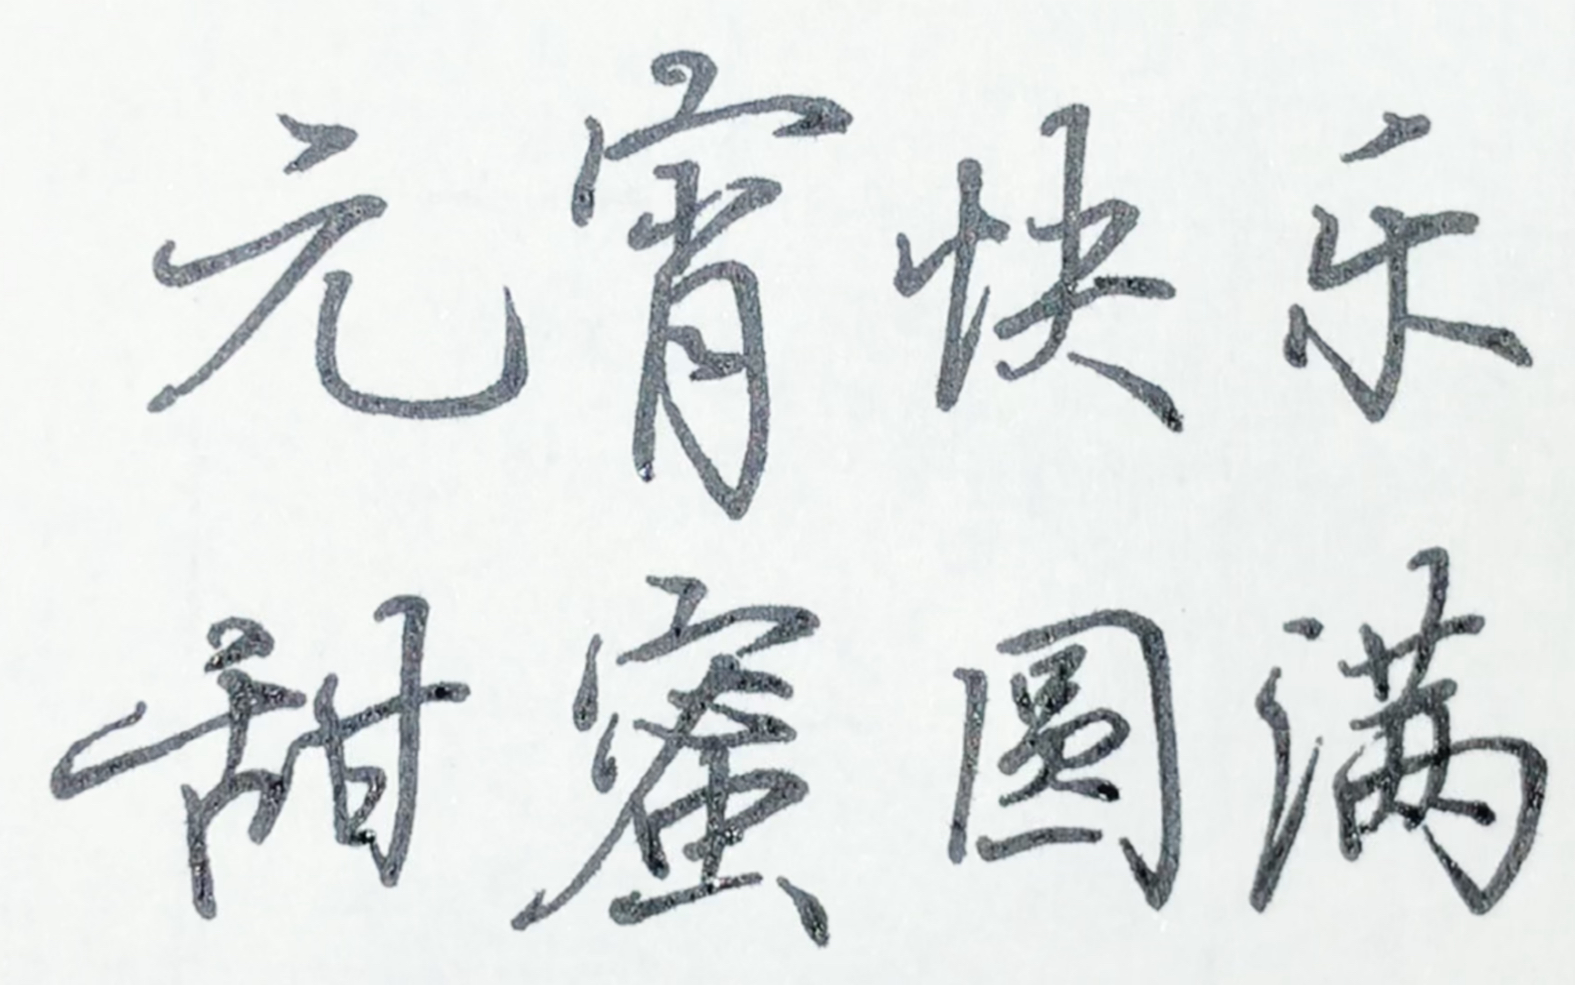 元宵快乐
甜蜜圆满